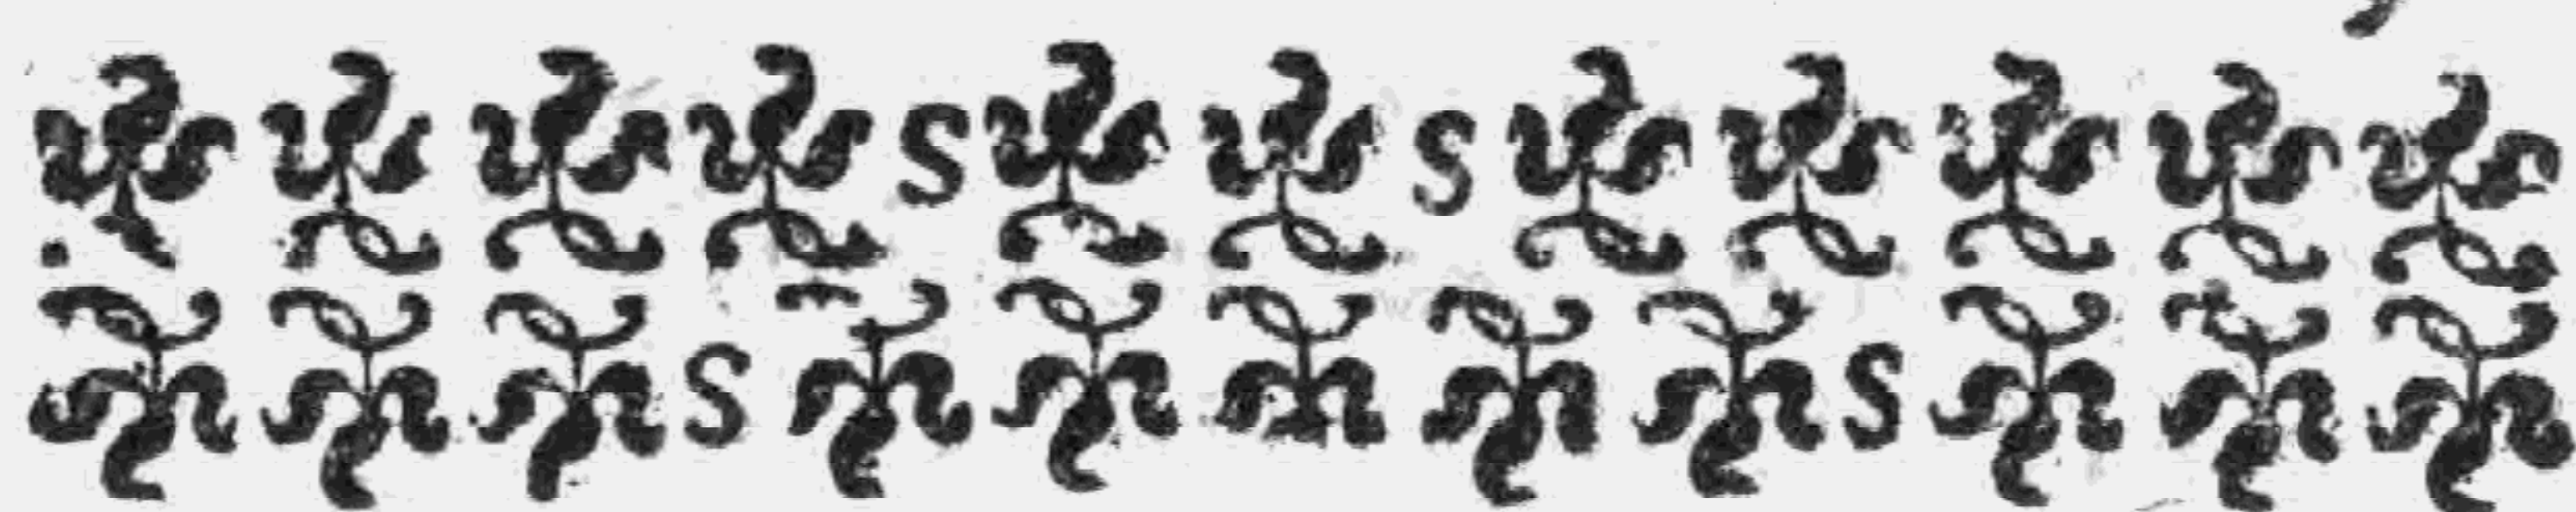 S S
S S